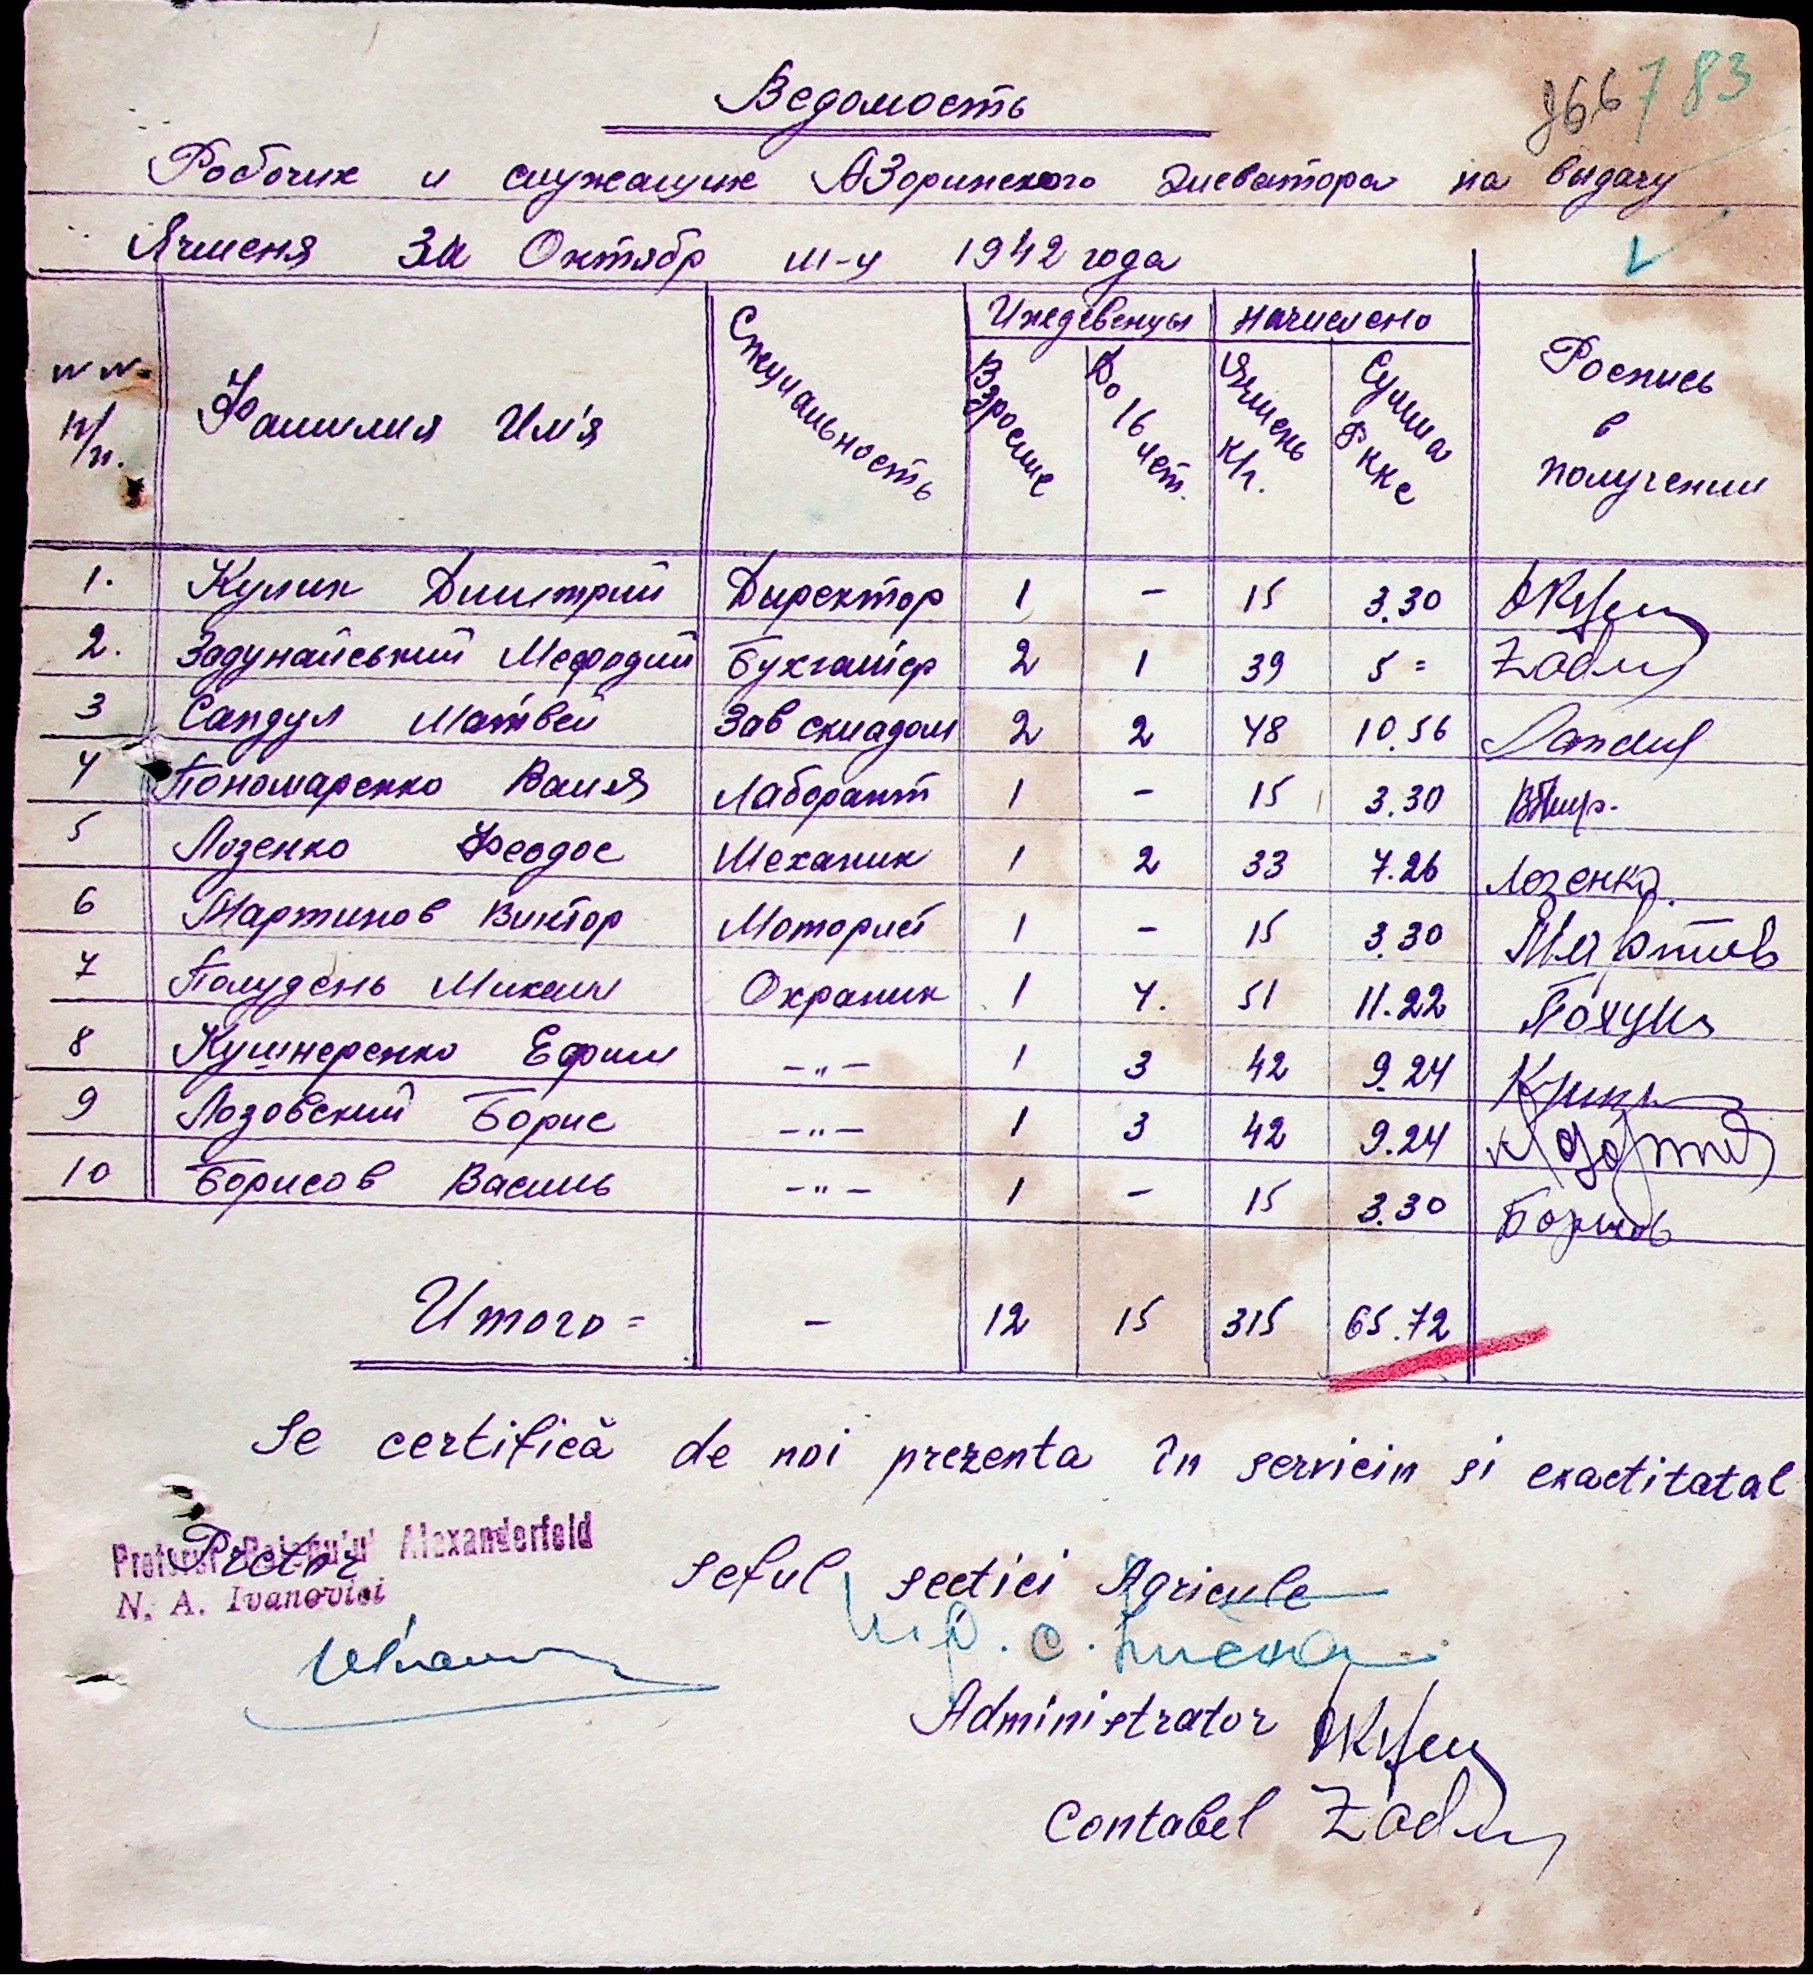 866 783
Ведомость
Робочих и служащих АЗоринского элеватора на выдачу
Ячменя За Октябр м-ц 1942 года
NN п/п. Фамилия Им'я Специальность Ижедевенцы начислено Роспись в получении
Взрослые До 16 лет. Ячмень к/г. Сумма
1. Кулик Дмитрий Директор 1 - 15 3.30
2. Задунайський Мефодий Бухгалтер 2 1 39 5 = Zadu
3 Сандул Матвей Зав складом 2 2 48 10.56 Sandul
4 Пономаренко Валя Лаборант 1 - 15 3.30
5 Лозенко Феодос Механик 1 2 33 7.26 Лозенко
6 Мартинов Виктор Моторист 1 - 15 3.30
7 Полудень Михаил Охраник 1 4. 51 11.22
8 Кушнеренко Ефим -„- 1 3 42 9.24
9 Лозовский Борис -„- 1 3 42 9.24
10 Борисов Василь -„- 1 - 15 3.30 Борисов
Итого = - 12 15 315 65.72
Se certifică de noi prezenta în serviciu si exactitatal
Pretorul Raionului Alexanderfeld
Pretor
N. A. Ivanovici
seful sectiei Agricule
Administrator
Contabel Zadu